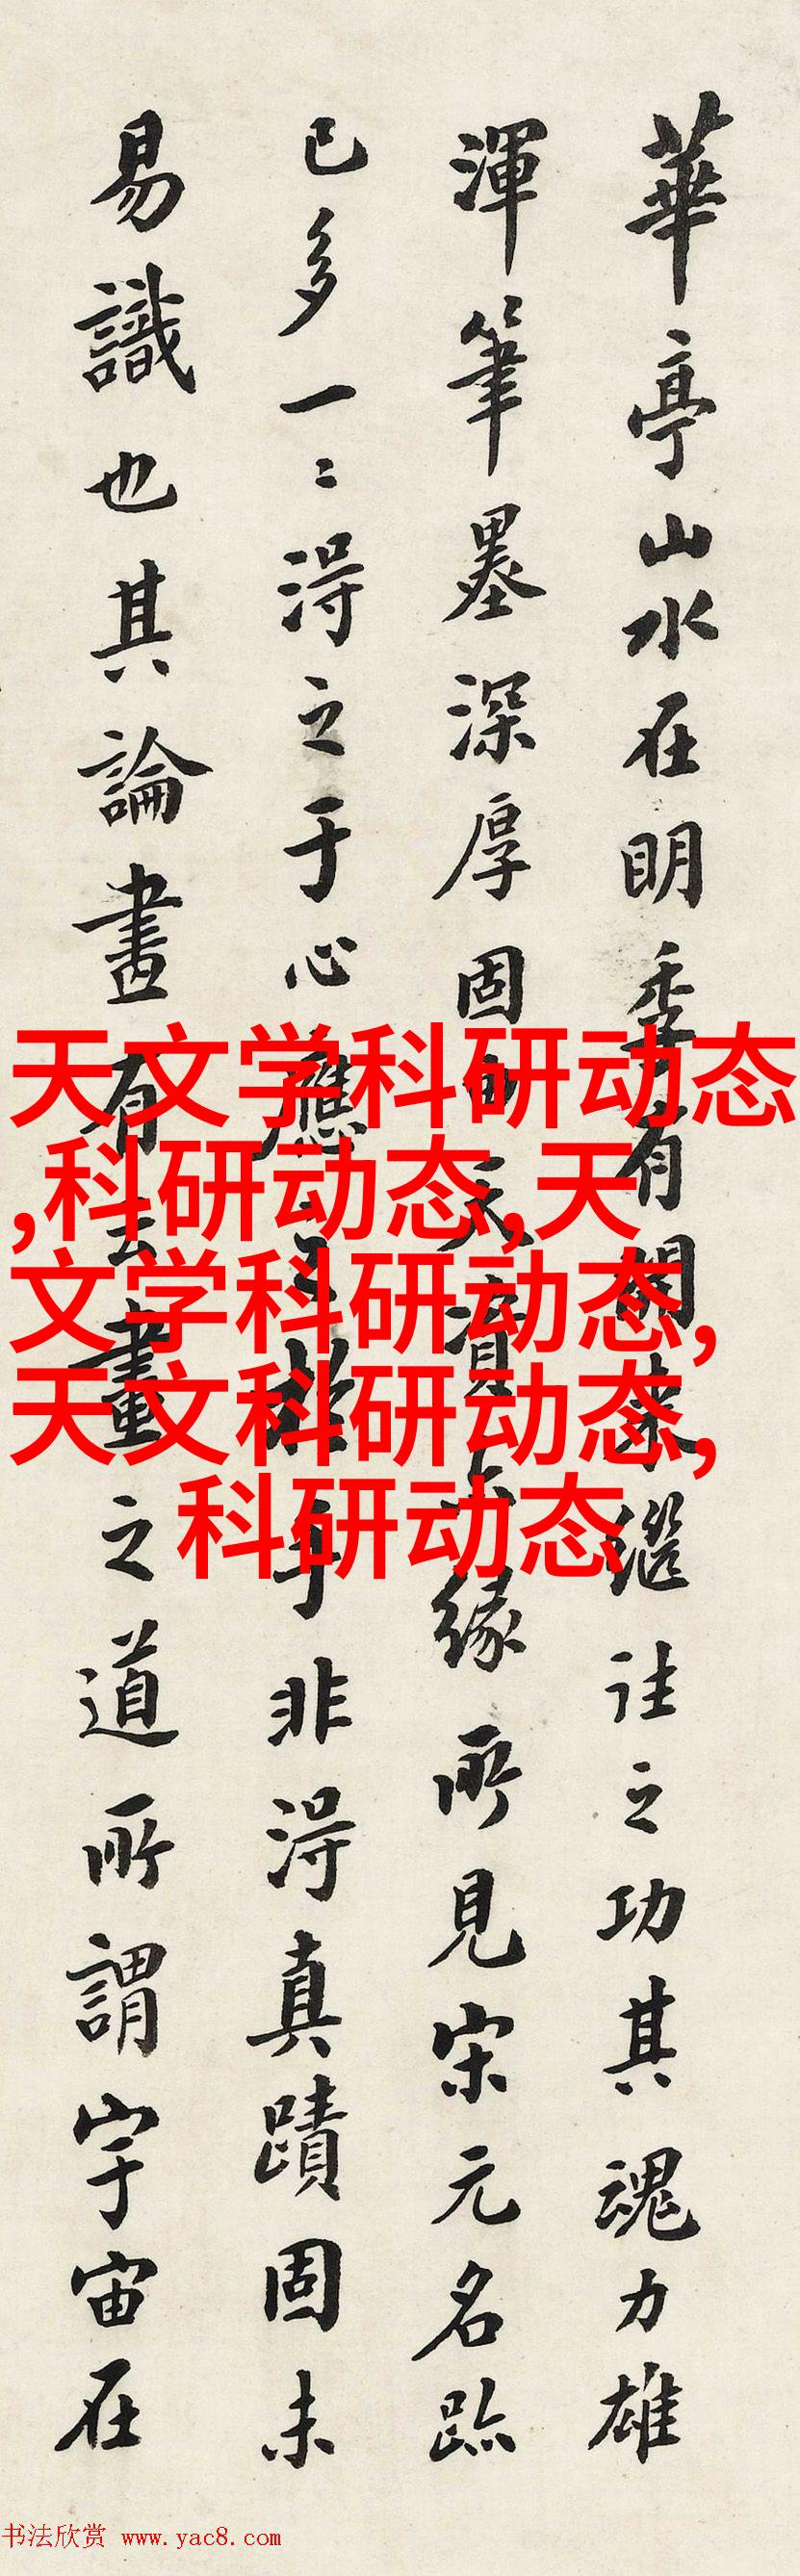 華亭山水在明季有開來繼往之功其魂力雄
渾筆墨深厚固由天資亦緣所見宋元名跡
已多一〻得之于心應之於手非得真蹟固未
易識也其論畫有云畫之道所謂宇宙在
天文学科研动态
,科研动态,天
文学科研动态,
天文科研动态,
科研动态
书法欣赏 www.yac8.com